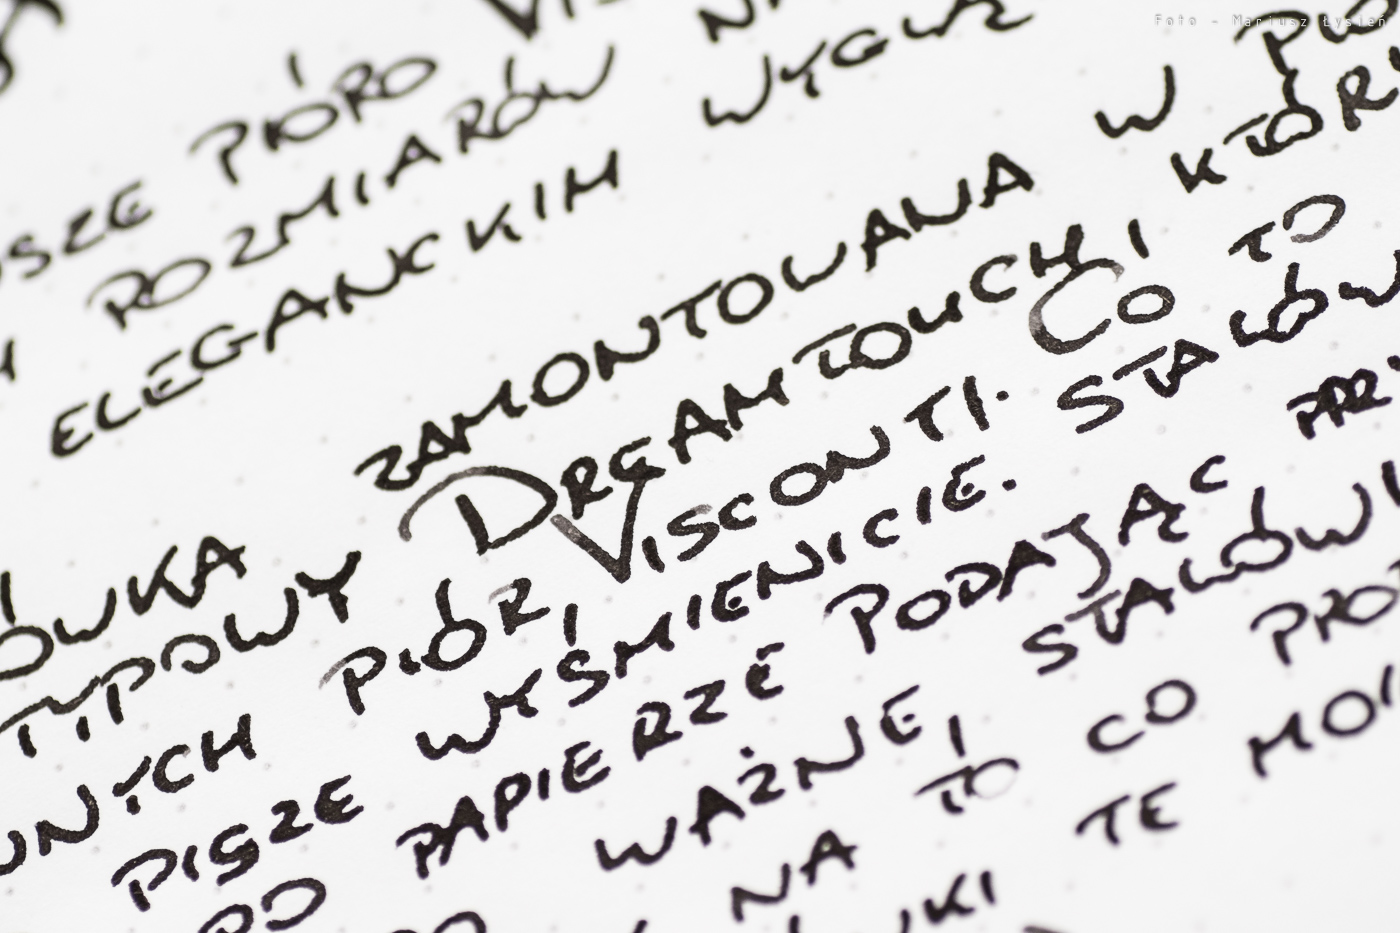 SZE PIÓRO
ROZMIARÓW
ELEGANCKIM WYGLĄ
ÓWKA ZAMONTOWANA W
TYPOWY DREAMTOUCH I KTÓR
NYCH PIÓR, VISCONTI. CO TO
PISZE WYŚMIENICIE. STALÓW
PAPIERZE PODAJĄC
WAŻNE, STALÓW
NA TO CO PRO
TE
Foto - Mariusz Łysień